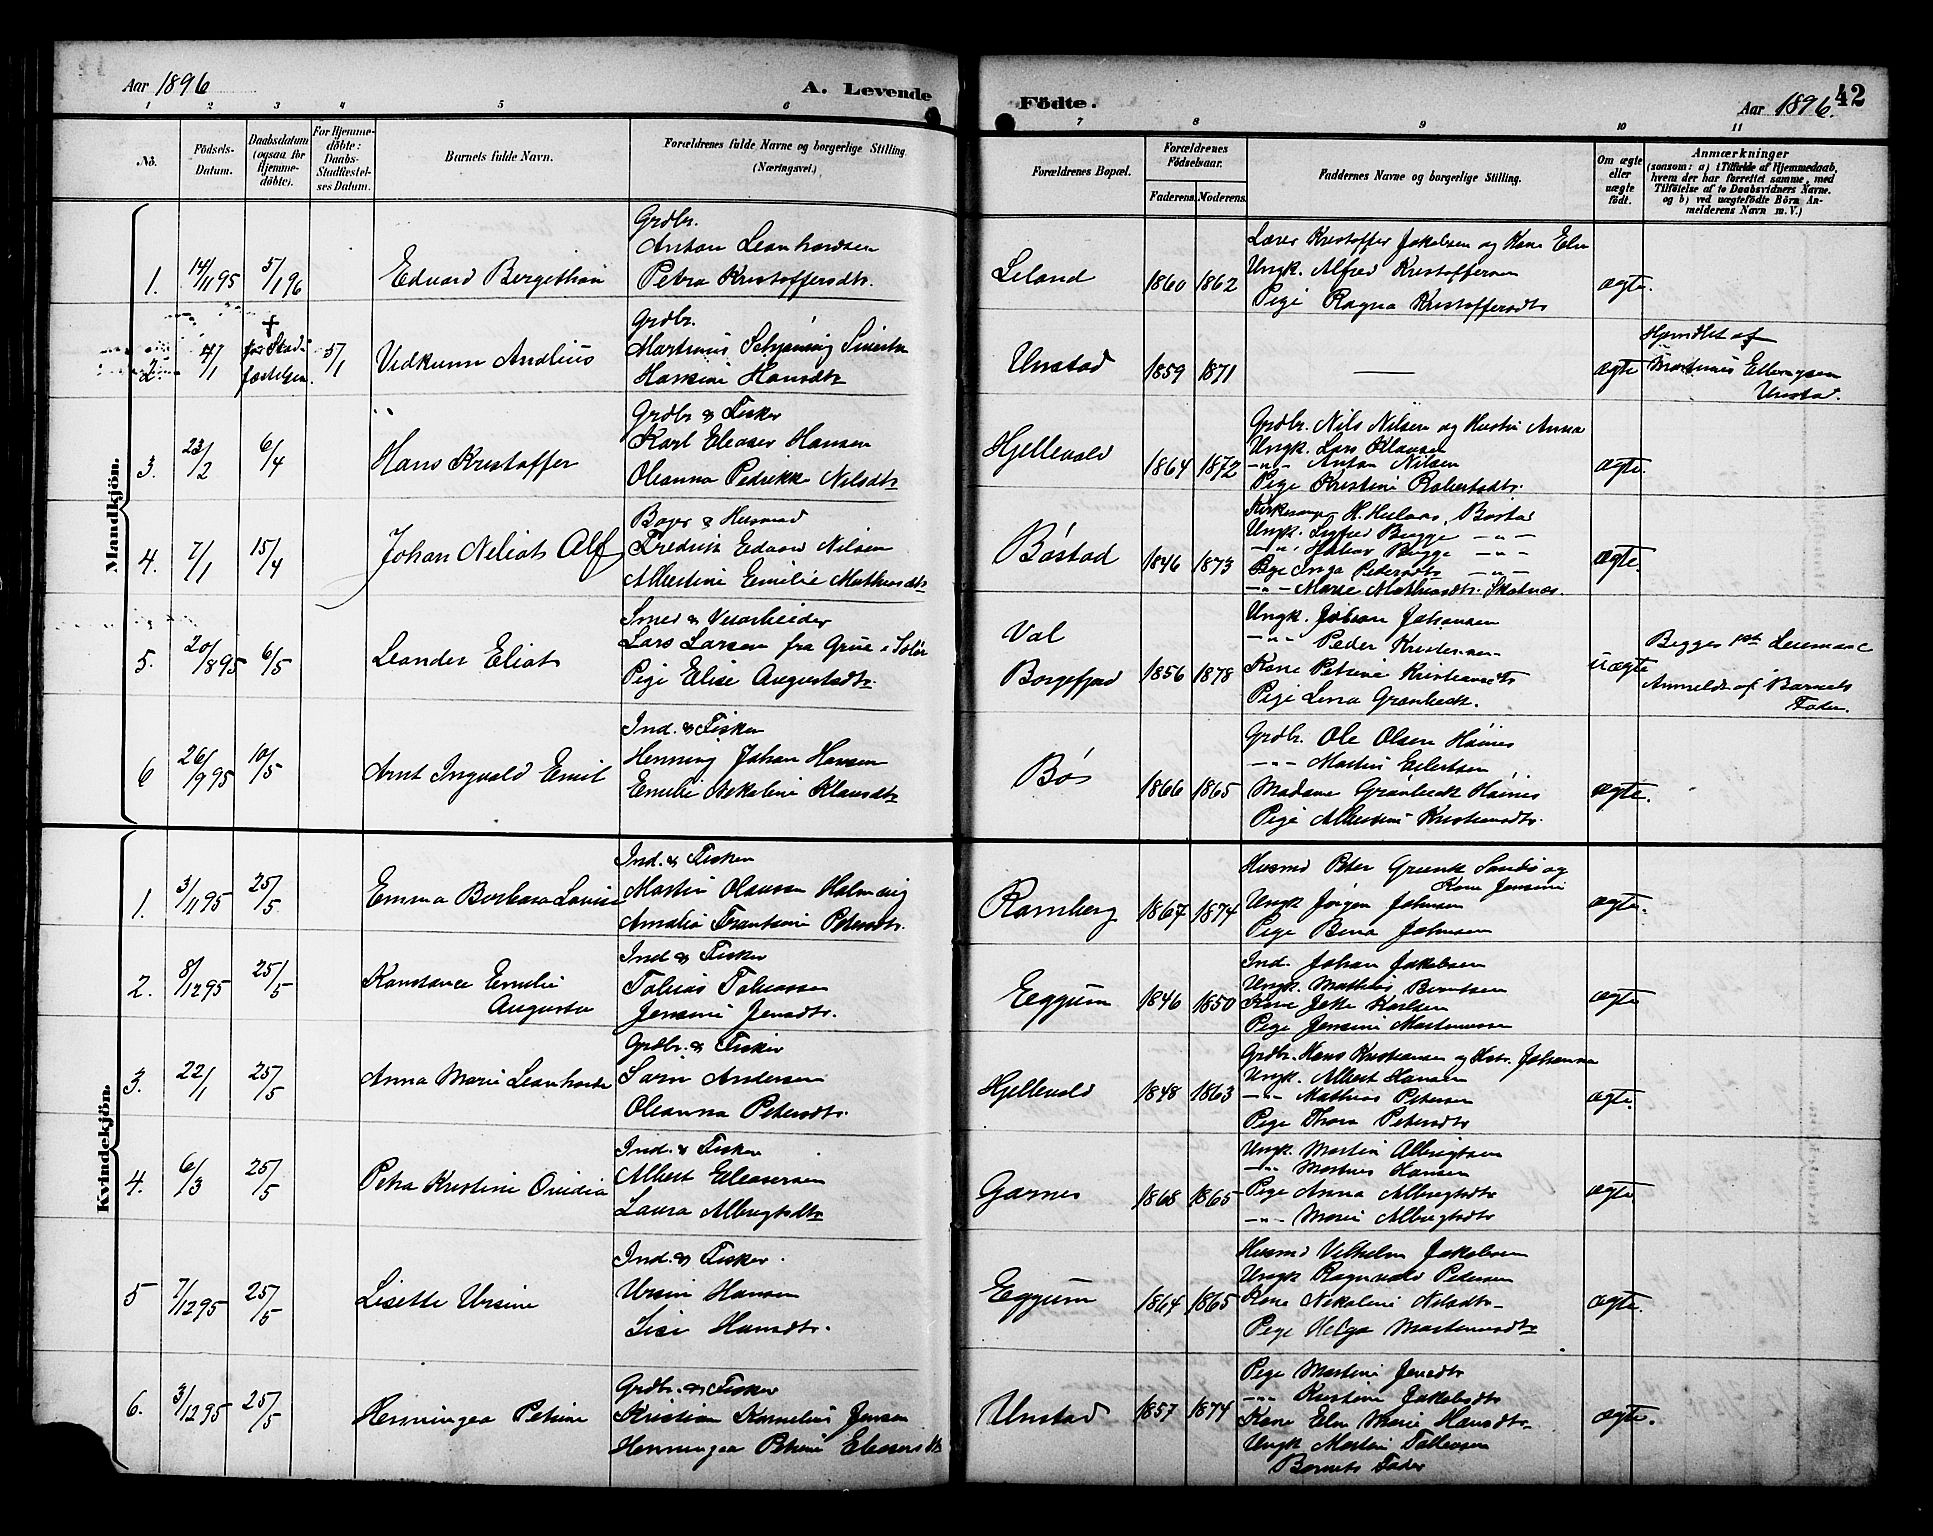 Aar 1896
A. Levende
Födte.
Aar 1896.
42
1 2 3 4 5 6 7 8 9 10 11
No.
Födsels-
Datum.
Daabsdatum
(ogsaa for
Hjemme-
döbte).
For Hjemme-
döbte:
Daabs-
Stadfæstel-
ses Datum.
Barnets fulde Navn.
Forældrenes fulde Navne og borgerlige Stilling
(Næringsvei.)
Forældrenes Bopæl.
Forældrenes
Födselsaar.
Faderens.
Moderens.
Faddernes Navne og borgerlige Stilling.
Om ægte
eller
uægte
födt.
Anmærkninger
(saasom: a) i Tilfælde af Hjemmedaab,
hvem der har forrettet samme, med
Tilföielse af to Daabsvidners Navne.
og b) ved uægtefödte Börn An-
melderens Navn m. V.)
Mandkjön.
1.
14/11 95
5/1 96
Edvard Bergethon
Grdbr.
Anton Leonhardsen
Petra Kristoffersdtr.
Leland
1860 1862
Lærer Kristoffer Jakobsen og Kone Elen
Ungk. Alfred Kristoffersen
Pige Ragna Kristoffersdtr
ægte.
2.
4/1
+
før Stad-
fæstelsen.
5/1
Vedkunn Andlius
Grdbr.
Martinus Schjenvig Sivertsen
Hansine Hansdtr
Unstad
1859 1871
—
ægte
Hjemdøbt af
Martinus Ellingsen
Unstad.
3.
23/2
6/4
Hans Kristoffer
Grdbr & Fisker
Karl Eleaser Hansen
Oleanna Pedrikke Nilsdtr
Hjellevold
1864 1872
Grdbr. Nils Nilsen og Hustru Anna
Ungk. Lars Klausen
-"- Anton Nilsen
Pige Kristine Robertsdtr.
ægte.
4.
7/1
15/4
Johan Neliot Alf
Bager & Husmand
Fredrik Edvard Nilsen
Albertine Emilie Mathiasdtr
Bøstad
1846 1873
Kirkesanger H. Hulaas, Bøstad
Ungk. Sigfred Bugge -"-
-"- Bugge -"-
Pige Inga Pedersdtr -"-
-"- Marie Mathiasdtr. Skotnes
ægte.
5.
20/8 95
6/5
Leander Eliot
Smed & Veiarbeider
Lars Larsen fra Grue i Solør
Pige Elise Augustsdtr
Val
Borgefjord
1856 1878
Ungk. Johan Johansen
-"- Peder Kristensen
Kone Petrine Kristiansdtr
Pige Lena Grønbeck.
uægte
Begges 1ste Leiermaal
Anmeldt af Barnets
Fader.
6
26/9 95
10/5
Arnt Ingvald Emil
Ind. & Fisker
Henning Johan Hansen
Emilie Nekoline Klausdtr
Bøs
1866 1865
Grdbr. Ole Olsen Haines
-"- Martin Eilertsen
Madame Grønbeck Haines
Pige Albertine Kristensdtr.
ægte.
Kvindekjön.
1.
3/11 95
25/5
Emma Barbara Lovise
Ind. & Fisker
Martin Olausen Holmvig
Amalia Frantsine Petersdtr.
Ramberg
1867 1874
Husmd Peter Grunk Sandø og
Kone Jensine
Ungk Jørgen Johnsen
Pige Bina Johnsen
ægte.
2.
8/12 95
25/5
Konstance Emilie
Augusta
Ind & Fisker
Tobias Tobiassen
Jensine Jensdtr.
Eggum
1846 1850
Ind. Johan Jakobsen
Ungk. Mathias Berntsen
Kone Jakobine Karlsen
Pige Jensine Martinussen
ægte
3.
22/1
25/5
Anna Marie Leonharda
Grdbr. & Fisker
Søren Andersen
Oleanna Petersdtr.
Hjellevold
1848 1863
Grdbr. Hans Kristiansen og Hstr. Johanna
Ungk. Albert Hansen
-"- Mathias Petersen
Pige Thora Petersdtr
ægte.
4.
6/3
25/5
Petra Kristine Ovidia
Ind. & Fisker
Albert Eleasersen
Laura Albrigtsdtr
Garnes
1868 1865
Ungk. Martin Albrigtsen
-"- Martines Hansen
Pige Anna Albrigtsdtr
-"- Marie Albrigtsdtr
ægte
5
7/12 95
25/5
Lisette Ursine
Ind. & Fisker.
Ursin Hansen
Lise Hansdtr.
Eggum
1864 1865
Husmd Vilhelm Jakobsen
Ungk Ragnvald Pedersen
Kone Nekoline Nilsdtr
Pige Helga Martinusdtr
ægte.
6.
3/12 95
25/5
Henningea Petrine
Grdbr. & Fisker
Kristian Kornelius Jensen
Henningea Petrine Eleasersdtr
Unstad
1857 1874
Pige Martine Jensdtr
-"- Kristine Jakobsdtr
Kone Elen Marie Hansdtr.
Ungk Martin Tollevsen
Barnets Fader
ægte.